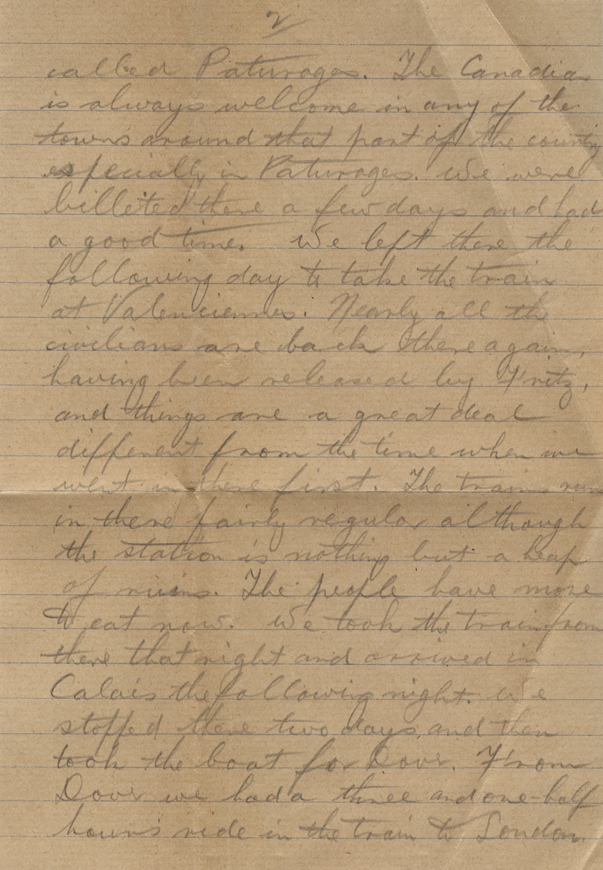 2
called Paturages. The Canadian
is always welcome in any of the
towns around that part of the country
especially in Paturages. We were
billeted there a few days and had
a good time. We left there the
following day to take the train
at Valenciennes. Nearly all the
civilians are back there again,
having been released by Fritz,
and things are a great deal
different from the time when we
went in there first. The trains run
in there fairly regular although
the station is nothing but a heap
of ruins. The people have more
to eat now. We took the train from
there that night and arrived in
Calais the following night. We
stopped there two days, and then
took the boat for Dover. From
Dover we had a three and one-half
hours ride in the train to London.